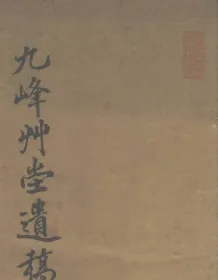 九峰艸堂遺稿